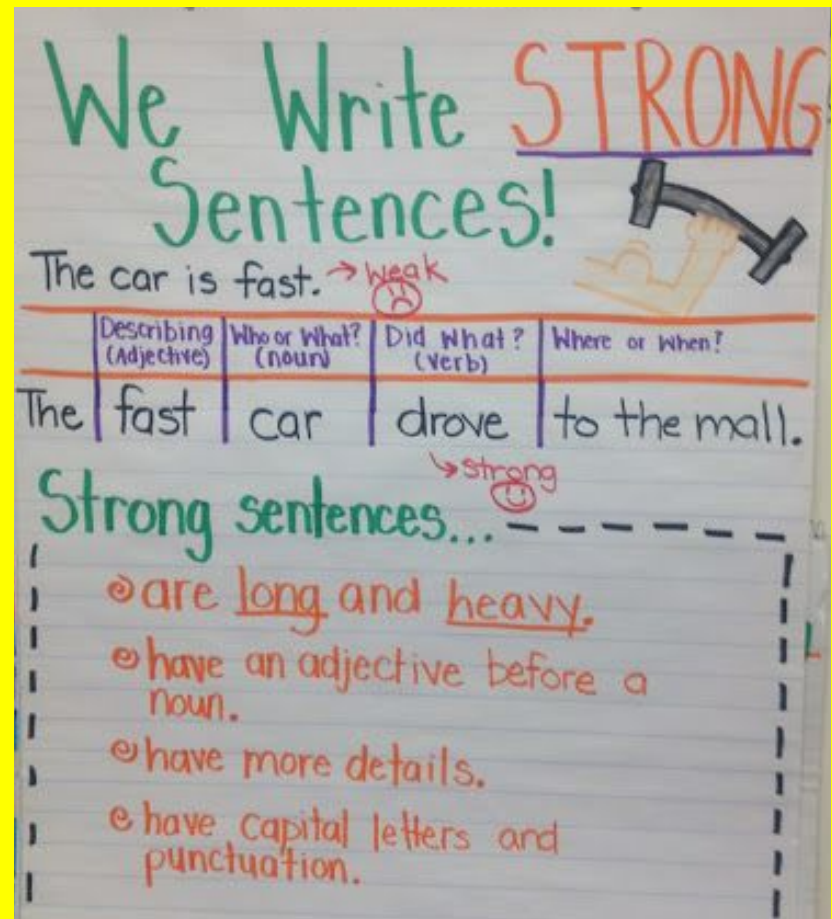 We Write STRONG
Sentences!
The car is fast. → weak
Describing (Adjective) Who or What? (noun) Did What? (verb) Where or When?
The fast car drove to the mall.
↳ strong
Strong sentences...
are long and heavy.
have an adjective before a
noun.
have more details.
have capital letters and
punctuation.